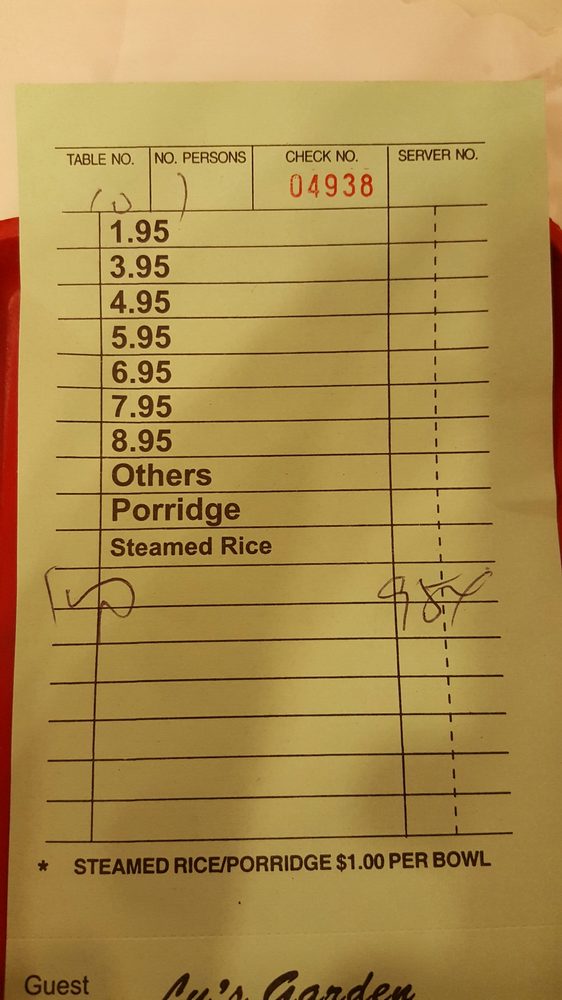 TABLE NO. NO. PERSONS CHECK NO. SERVER NO.
04938
1.95
3.95
4.95
5.95
6.95
7.95
8.95
Others
Porridge
Steamed Rice
* STEAMED RICE/PORRIDGE $1.00 PER BOWL
Guest Lu's Garden